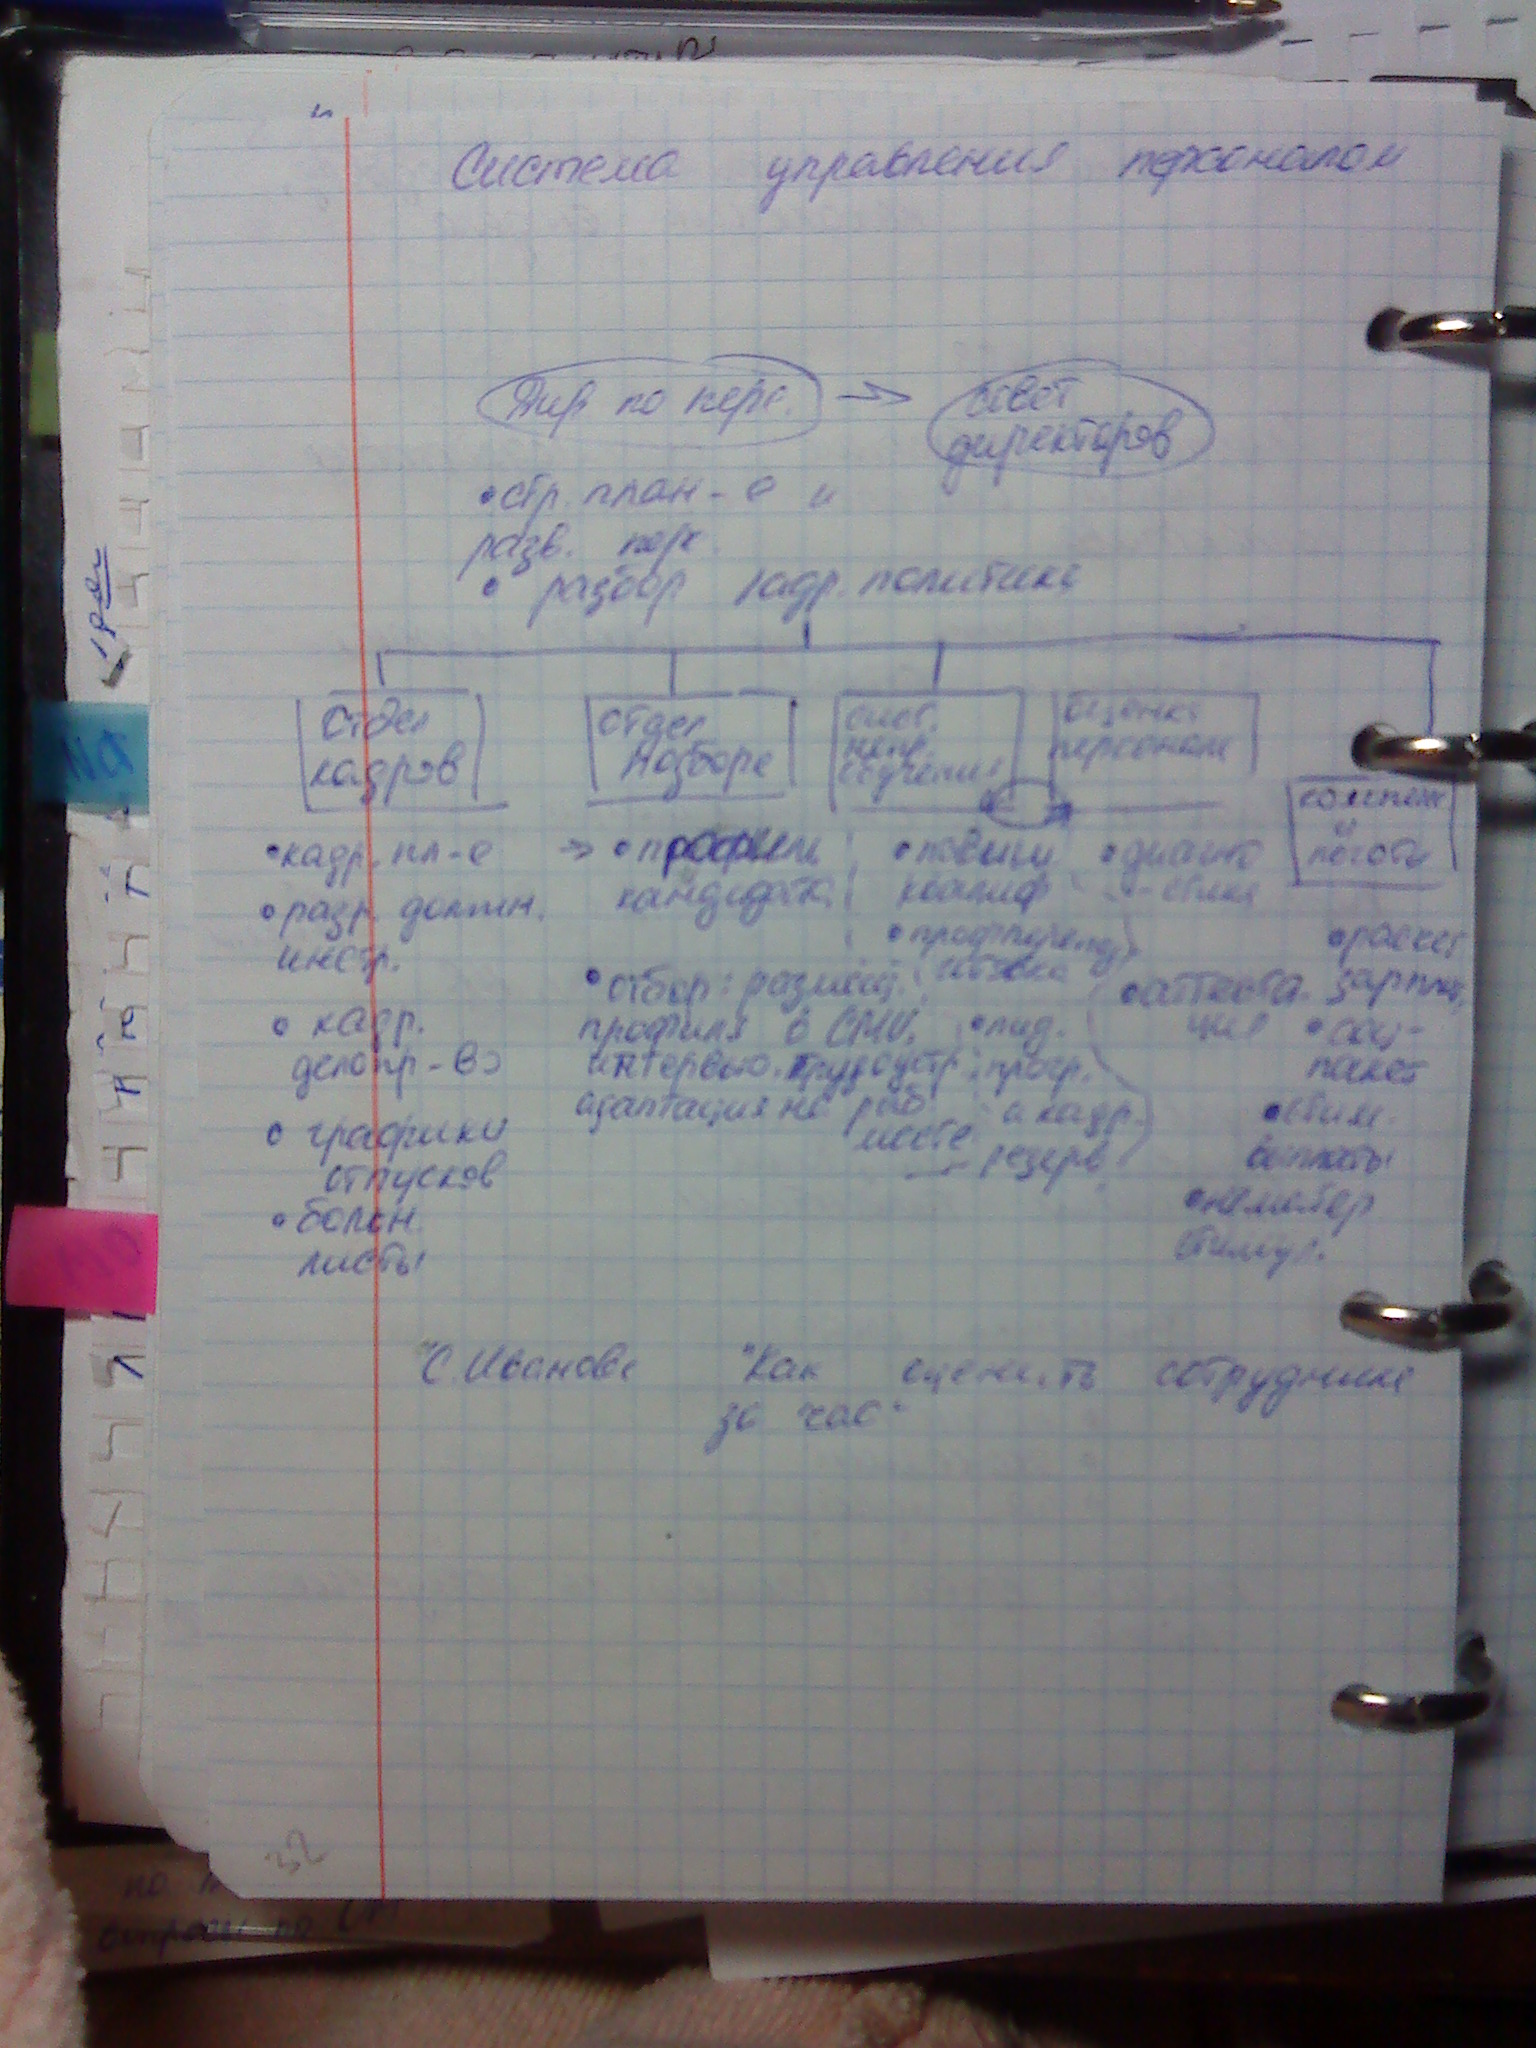 Система управления персоналом
Дир по перс. → совет
директоров
• стр. план-е и
разв. перс.
• разбор кадр. политики
отдел
кадров
• кадр. пл-е
• разр. должн.
инстр.
• кадр.
делопр-во
• графики
отпусков
• больн.
листы
отдел
подбора
→ • профиль
кандидата
• отбор: размещ.
профиля в СМИ,
интервью. трудоустр.
адаптация на раб
месте
сист.
непр.
обучения
• повыш
квалиф
• профпереподг
отовка
• лид.
прогр.
и кадр.
резерв
оценка
персонала
• диагно
стика
• аттеста.
ция
компенс
и
льготы
• расчет
зарплат.
• соц-
пакет
• стим.
выплаты
• нематер
стимул.
"С. Иванова "Как оценить сотрудника
за час"
32